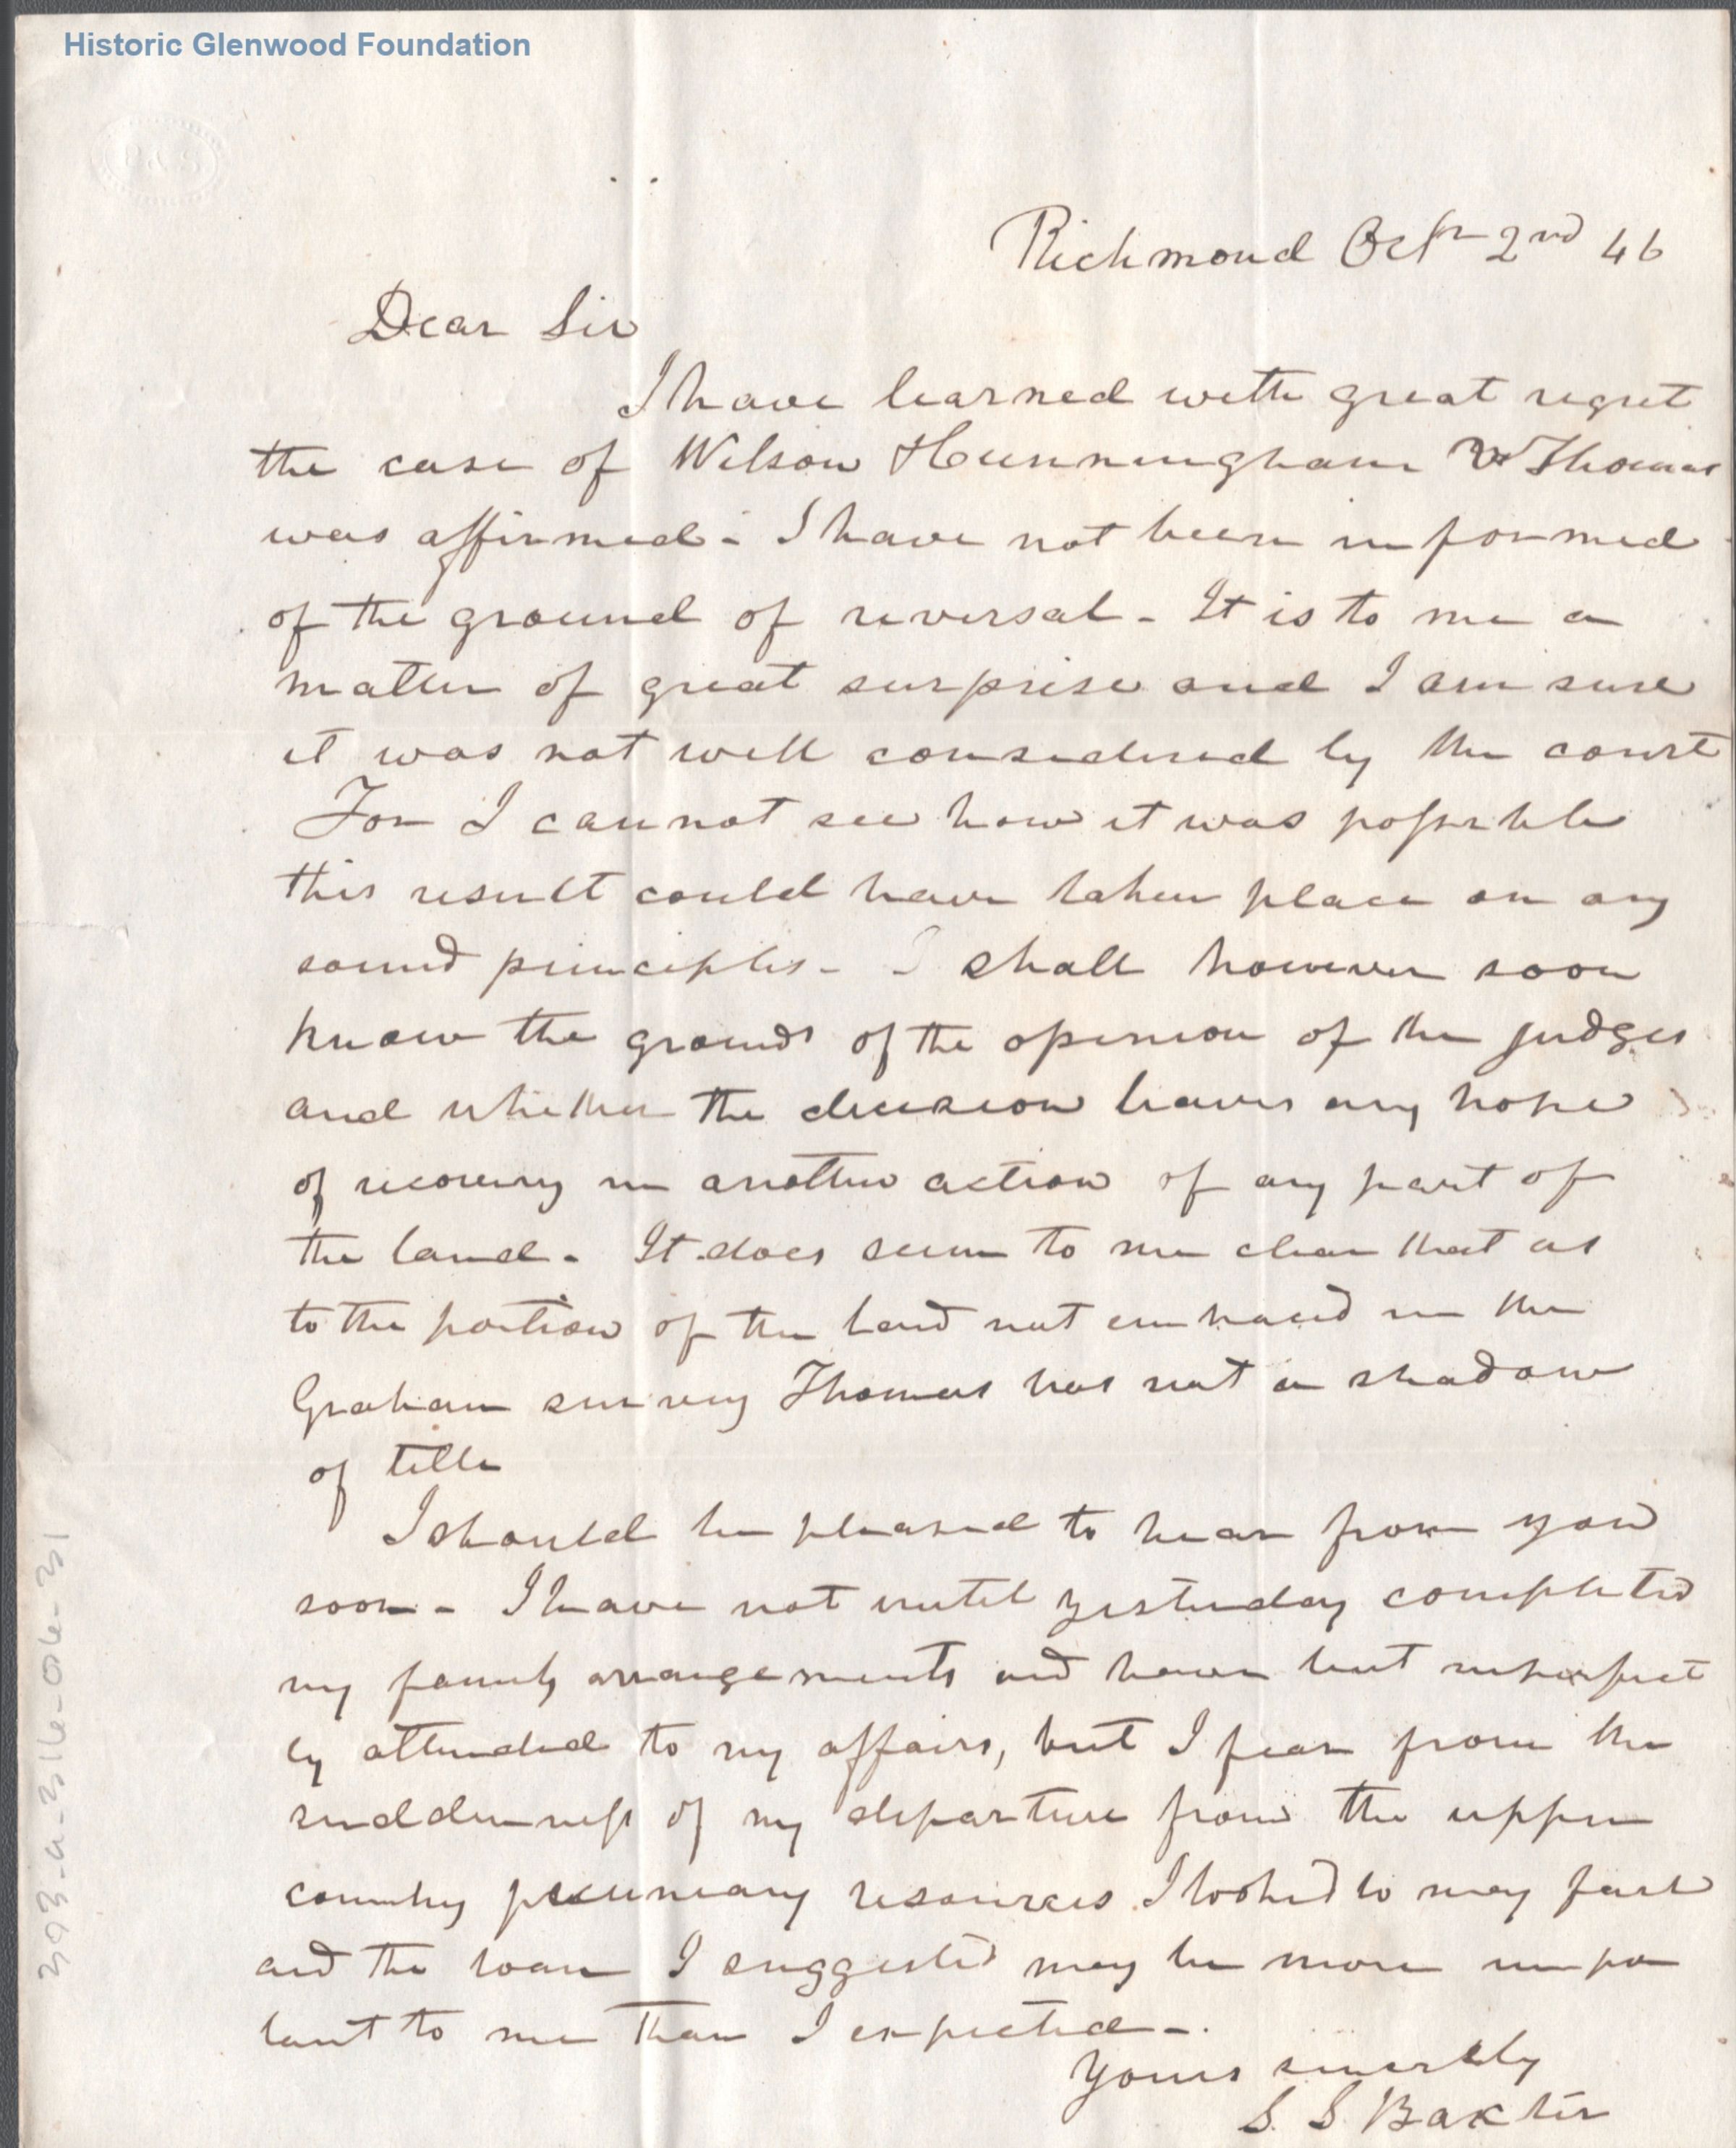 Historic Glenwood Foundation
Richmond Octr 2nd 46
Dear Sir
I have learned with great regret
the case of Wilson Hunningham vs Thomas
was affirmed - I have not been informed
of the ground of reversal - It is to me a
matter of great surprise and I am sure
it was not well considered by the court
For I cannot see how it was possible
this result could have taken place on any
sound principles - I shall however soon
know the grounds of the opinion of the judges
and whether the decision leaves any hope
of recovery in another action of any part of
the land - It does seem to me clear that as
to the portion of the land not embraced in the
Graham survey Thomas has not a shadow
of title
I should be pleased to hear from you
soon - I have not until yesterday completed
my family arrangements and have but imperfect
ly attended to my affairs, but I fear from the
suddenness of my departure from the upper
country pecuniary resources I looked to may fail
and the loan I suggested may be more impor
tant to me than I expected -
Yours sincerely
S. S. Baxter
393-a-316-06-31